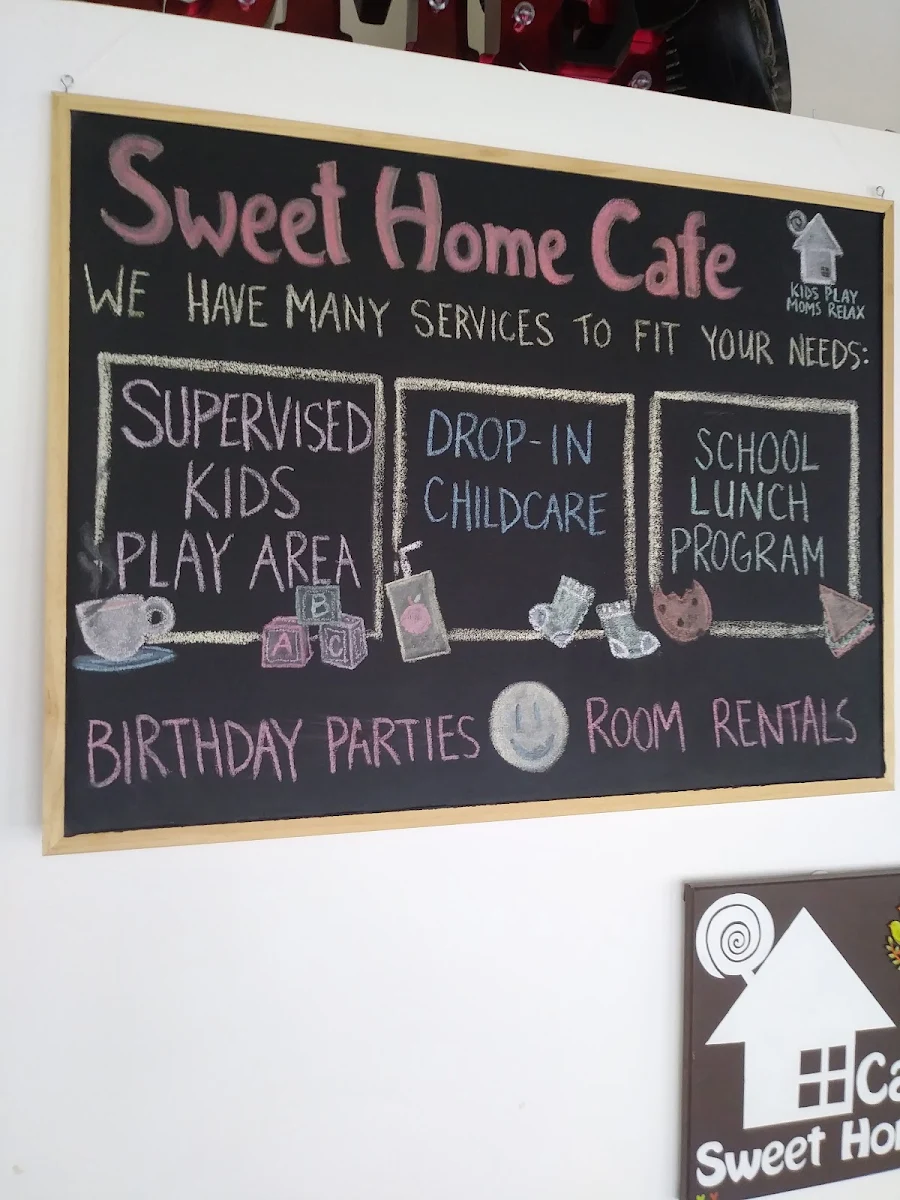 Sweet Home Cafe
KIDS PLAY
MOMS RELAX
WE HAVE MANY SERVICES TO FIT YOUR NEEDS:
SUPERVISED
KIDS
PLAY AREA
B
A C
DROP-IN
CHILDCARE
SCHOOL
LUNCH
PROGRAM
BIRTHDAY PARTIES ROOM RENTALS
Ca
Sweet Ho